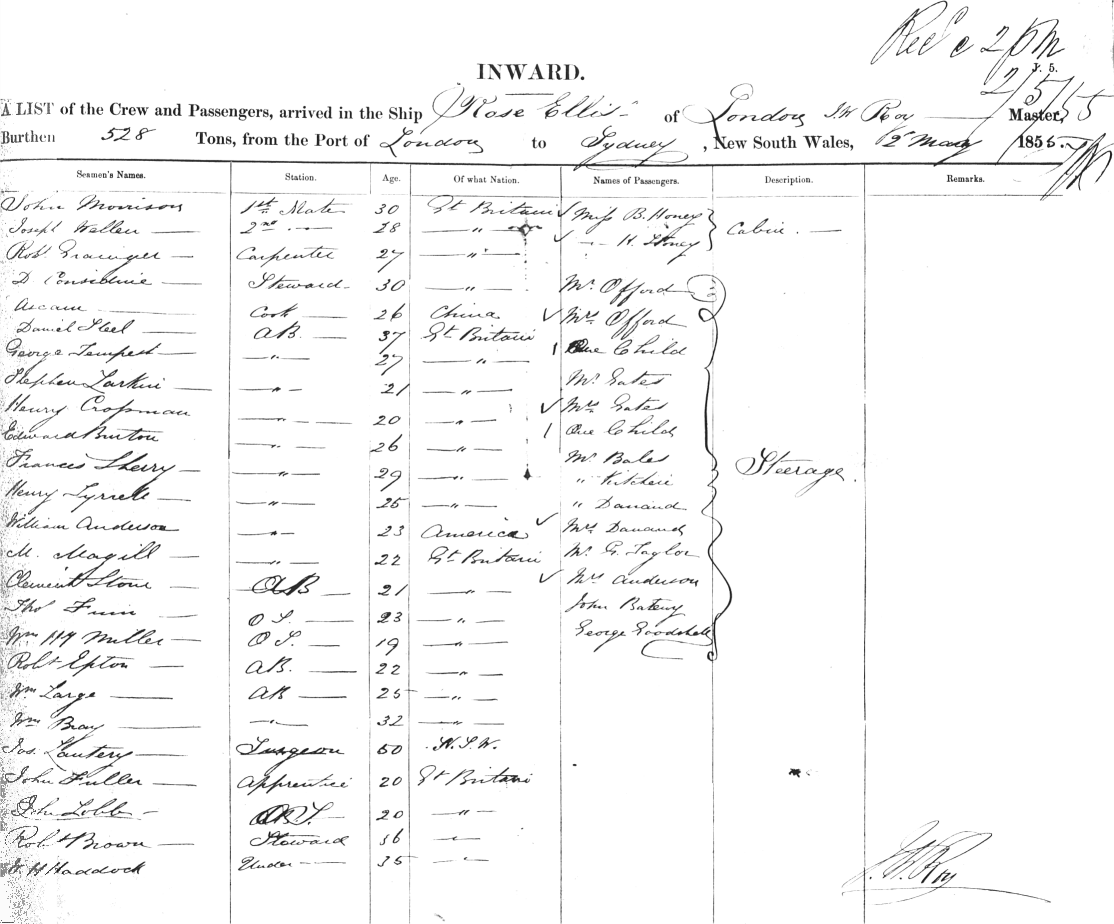 Rec'd 2 pm
2/5/55
J. 5.
INWARD.
A LIST of the Crew and Passengers, arrived in the Ship Rose Ellis of London J.W. Roy Master,
Burthen 528 Tons, from the Port of London to Sydney, New South Wales, 2d May 1855.
Seamen's Names. Station. Age. Of what Nation. Names of Passengers. Description. Remarks.
John Morrison 1st Mate 30 Gt Britain ✓ Miss B. Honey
Joseph Wallen 2nd — 28 — " — ✓ — H. Honey Cabin. —
Robt Grainger — Carpenter 27 — " —
D. Considine — Steward 30 — " — Mr Offord
Ascam Cook — 26 China ✓ Mrs Offord
Daniel Steel — AB. — 37 Gt Britain
George Tempest — — " — 27 — " — 1 One Child
Stephen Larkin — — " — 21 — " — Mr Eates
Henry Cropman — " — 20 — " — ✓ Mrs Eates
Edward Burton — " — 26 — " — 1 One Child
Frances Sherry — — " — 29 — " — Mr Bales
" Kitchen Steerage.
Henry Tyrrell — — " — 25 — " — " Danand
William Anderson — " — 23 America ✓ Mrs Danand
M. Magill — — " — 22 Gt Britain Mr G. Taylor
Clement Stone — AB — 21 — " — ✓ Mrs Anderson
Thos — O S. — 23 — " — John Bateny
Wm Hy Miller — O S. — 19 — " — George Goodshell
Robt Epton — AB. — 22 — " —
Wm Large — AB — 25 — " —
Wm Bray — " — 32 — " —
Jos. Lantery — Surgeon 50 N.S.W.
John Fuller — Apprentice 20 Gt Britain
John Lobb — 20 — " —
Robt Brown — Steward 36 — " —
H Haddock Under — 35 — " —
J.W. Roy